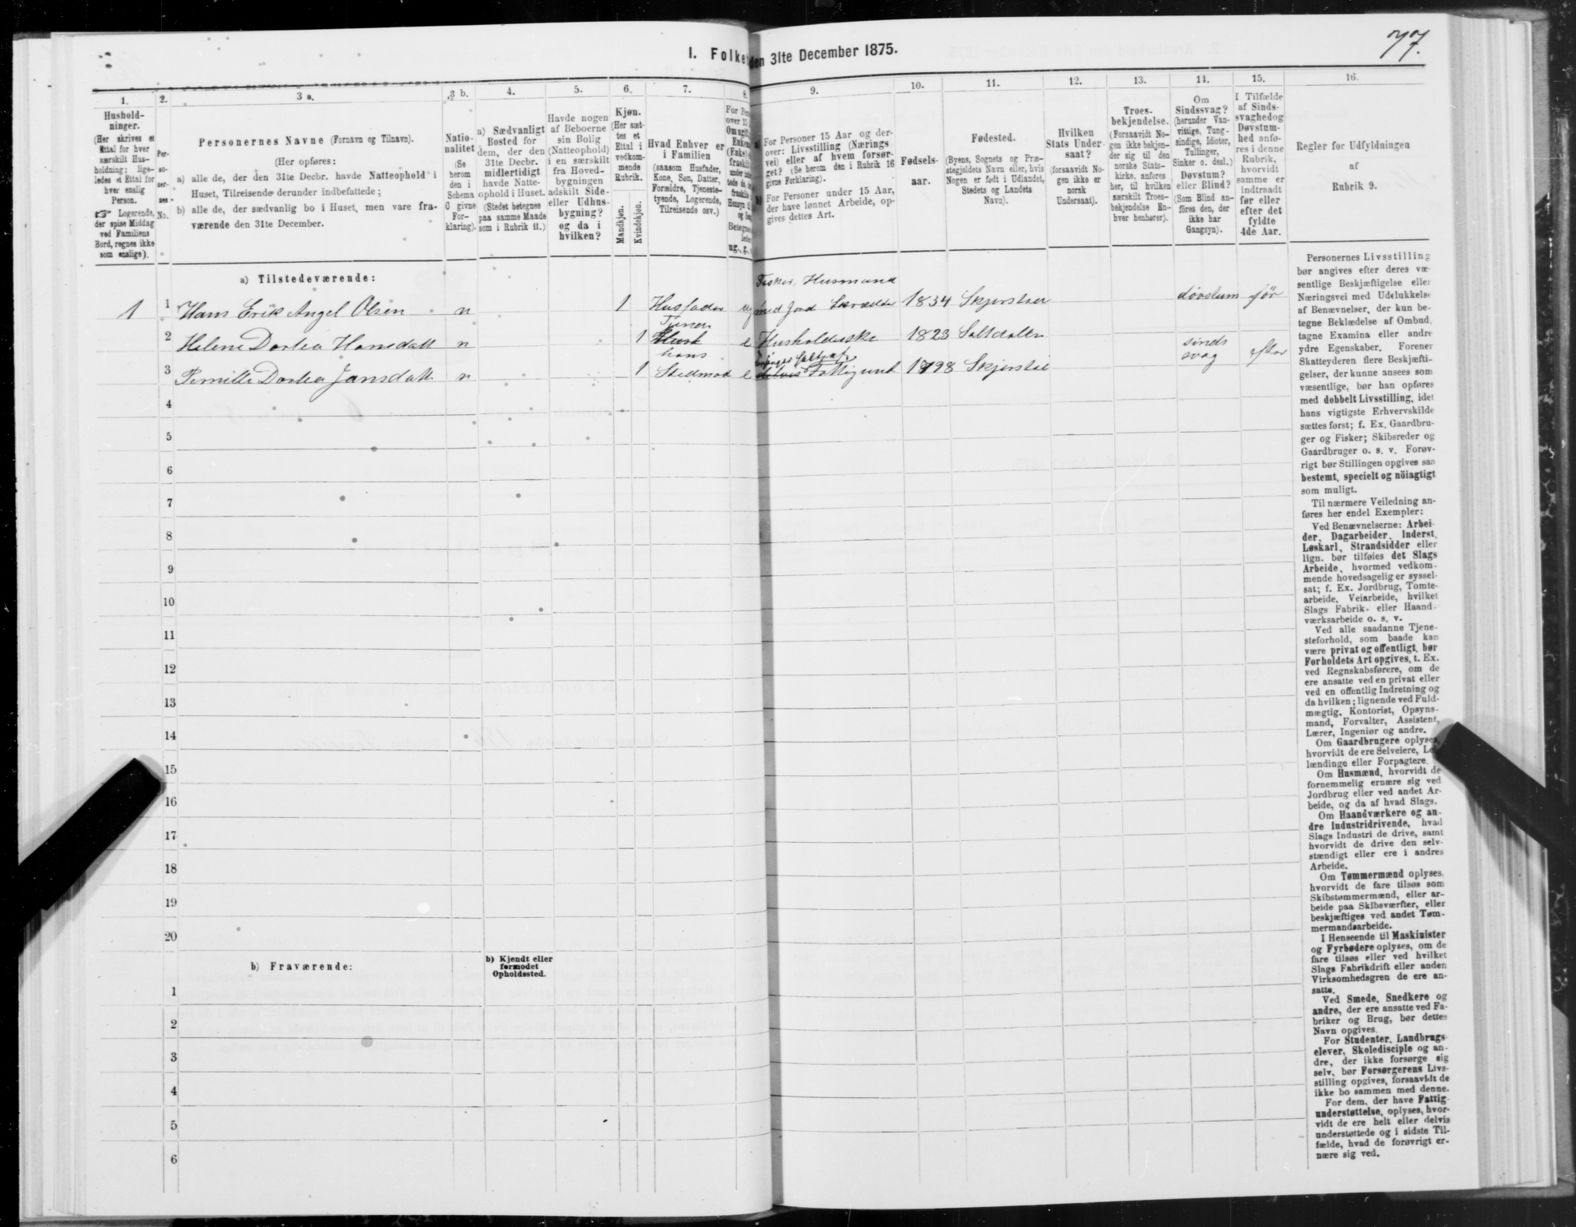 77.
I. Folke
den 31te December 1875.
1.
Hushold-
ninger.
(Her skrives et
Ettal for hver
særskilt Hus-
holdning; lige-
ledes et Ettal for
hver enslig
Person.
☞ Logerende,
der spise Middag
ved Familiens
Bord, regnes ikke
som enslige).
2.
Per-
so-
ner-
nes
No.
3 a.
Personernes Navne (Fornavn og Tilnavn).
(Her opføres:
a) alle de, der den 31te Decbr. havde Natteophold i
Huset, Tilreisende derunder indbefattede;
b) alle de, der sædvanlig bo i Huset, men vare fra-
værende den 31te December.
3 b.
Natio-
nalitet
(Se
herom
den i
Schema
C givne
For-
klaring).
4.
a) Sædvanligt
Bosted for
dem, der den
31te Decbr.
midlertidigt
havde Natte-
ophold i Huset.
(Stedet betegnes
paa samme Maade
som i Rubrik 11.)
5.
Havde nogen
af Beboerne
sin Bolig
(Natteophold)
i en særskilt
fra Hoved-
bygningen
adskilt Side-
eller Udhus-
bygning?
og da i
hvilken?
6.
Kjøn.
(Her sæt-
tes et
Ettal i
vedkom-
mende
Rubrik.
Mandkjøn.
Kvindekjøn.
7.
Hvad Enhver er
i Familien
(saasom Husfader,
Kone, Søn, Datter,
Forældre, Tjeneste-
tyende, Logerende,
Tilreisende osv.)
8.
9.
For Personer 15 Aar og der-
over: Livsstilling (Nærings-
vei) eller af hvem forsør-
get? (Se herom den i Rubrik 16
givne Forklaring).
For Personer under 15 Aar,
der have lønnet Arbeide, op-
gives dettes Art.
10.
Fødsels-
aar.
11.
Fødested.
(Byens, Sognets og Præ-
stegjeldets Navn eller, hvis
Nogen er født i Udlandet,
Stedets og Landets
Navn).
12.
Hvilken
Stats Under-
saat?
(forsaavidt No-
gen ikke er
norsk
Undersaat).
13.
Troes-
bekjendelse.
(Forsaavidt No-
gen ikke bekjen-
der sig til den
norske Stats-
kirke, anføres
her, til hvilken
særskilt Troes-
bekjendelse En-
hver henhører).
14.
Om
Sindssvag?
(herunder Van-
vittige, Tung-
sindige, Idioter,
Tullinger,
Sinker o. desl.)
Døvstum?
eller Blind?
(Som Blind an-
føres den, der
ikke har
Gangsyn).
15.
I Tilfælde
af Sinds-
svaghed og
Døvstum-
hed anfø-
res i denne
Rubrik,
hvorvidt
samme er
indtraadt
før eller
efter det
fyldte
4de Aar.
16.
Regler for Udfyldningen
af
Rubrik 9.
a) Tilstedeværende:
Fisker, Husmand
1 1 Hans Erik Angel Olsen n 1 Husfader ug med Jord Skrædder 1834 Skjerstad døvstum før
Tjener
2 Helene Dortea Hansdatt n 1 e Husholderske 1823 Saltdalen sinds
svag efter
hans
3 Pernille Dortea Jansdatt n 1 Stedmod e delvis Fattigund 1798 Skjerstad
4
5
6
7
8
9
10
11
12
13
14
15
16
17
18
19
20
b) Fraværende:
b) Kjendt eller
formodet
Opholdssted.
1
2
3
4
5
6
Personernes Livsstilling
bør angives efter deres væ-
sentlige Beskjæftigelse eller
Næringsvei med Udelukkelse
af Benævnelser, der kun be-
tegne Beklædelse af Ombud,
tagne Examina eller andre
ydre Egenskaber. Forener
Skatteyderen flere Beskjæfti-
gelser, der kunne ansees som
væsentlige, bør han opføres
med dobbelt Livsstilling, idet
hans vigtigste Erhvervskilde
sættes først; f. Ex. Gaardbru-
ger og Fisker; Skibsreder og
Gaardbruger o. s. v. Forøv-
rigt bør Stillingen opgives saa
bestemt, specielt og nøiagtigt
som muligt.
Til nærmere Veiledning an-
føres her endel Exempler:
Ved Benævnelserne: Arbei-
der, Dagarbeider, Inderst,
Løskarl, Strandsidder eller
lign. bør tilføies det Slags
Arbeide, hvormed vedkom-
mende hovedsagelig er syssel-
sat; f. Ex. Jordbrug, Tomte-
arbeide, Veiarbeide, hvilket
Slags Fabrik- eller Haand-
værksarbeide o. s. v.
Ved alle saadanne Tjene-
steforhold, som baade kan
være privat og offentligt, bør
Forholdets Art opgives, t. Ex.
ved Regnskabsførere, om de
ere ansatte ved en privat eller
ved en offentlig Indretning og
da hvilken; lignende ved Fuld-
mægtig, Kontorist, Opsyns-
mand, Forvalter, Assistent,
Lærer, Ingeniør og andre.
Om Gaardbrugere oplyses,
hvorvidt de ere Selveiere, Lei-
lændinge eller Forpagtere.
Om Husmænd, hvorvidt de
fornemmelig ernære sig ved
Jordbrug eller ved andet Ar-
beide, og da af hvad Slags.
Om Haandværkere og an-
dre Industridrivende, hvad
Slags Industri de drive, samt
hvorvidt de drive den selv-
stændigt eller ere i andres
Arbeide.
Om Tømmermænd oplyses,
hvorvidt de fare tilsøs som
Skibstømmermænd, eller ar-
beide paa Skibsværfter, eller
beskjæftiges ved andet Tøm-
mermandsarbeide.
I Henseende til Maskinister
og Fyrbødere oplyses, om de
fare tilsøs eller ved hvilket
Slags Fabrikdrift eller anden
Virksomhedsgren de ere an-
satte.
Ved Smede, Snedkere og
andre, der ere ansatte ved Fa-
briker og Brug, bør dettes
Navn opgives.
For Studenter, Landbrugs-
elever, Skoledisciple og an-
dre, der ikke forsørge sig
selv, bør Forsørgerens Livs-
stilling opgives, forsaavidt de
ikke bo sammen med denne.
For dem, der have Fattig-
understøttelse, oplyses, hvor-
vidt de ere helt eller delvis
understøttede og i sidste Til-
fælde, hvad de forøvrigt er-
nære sig ved.